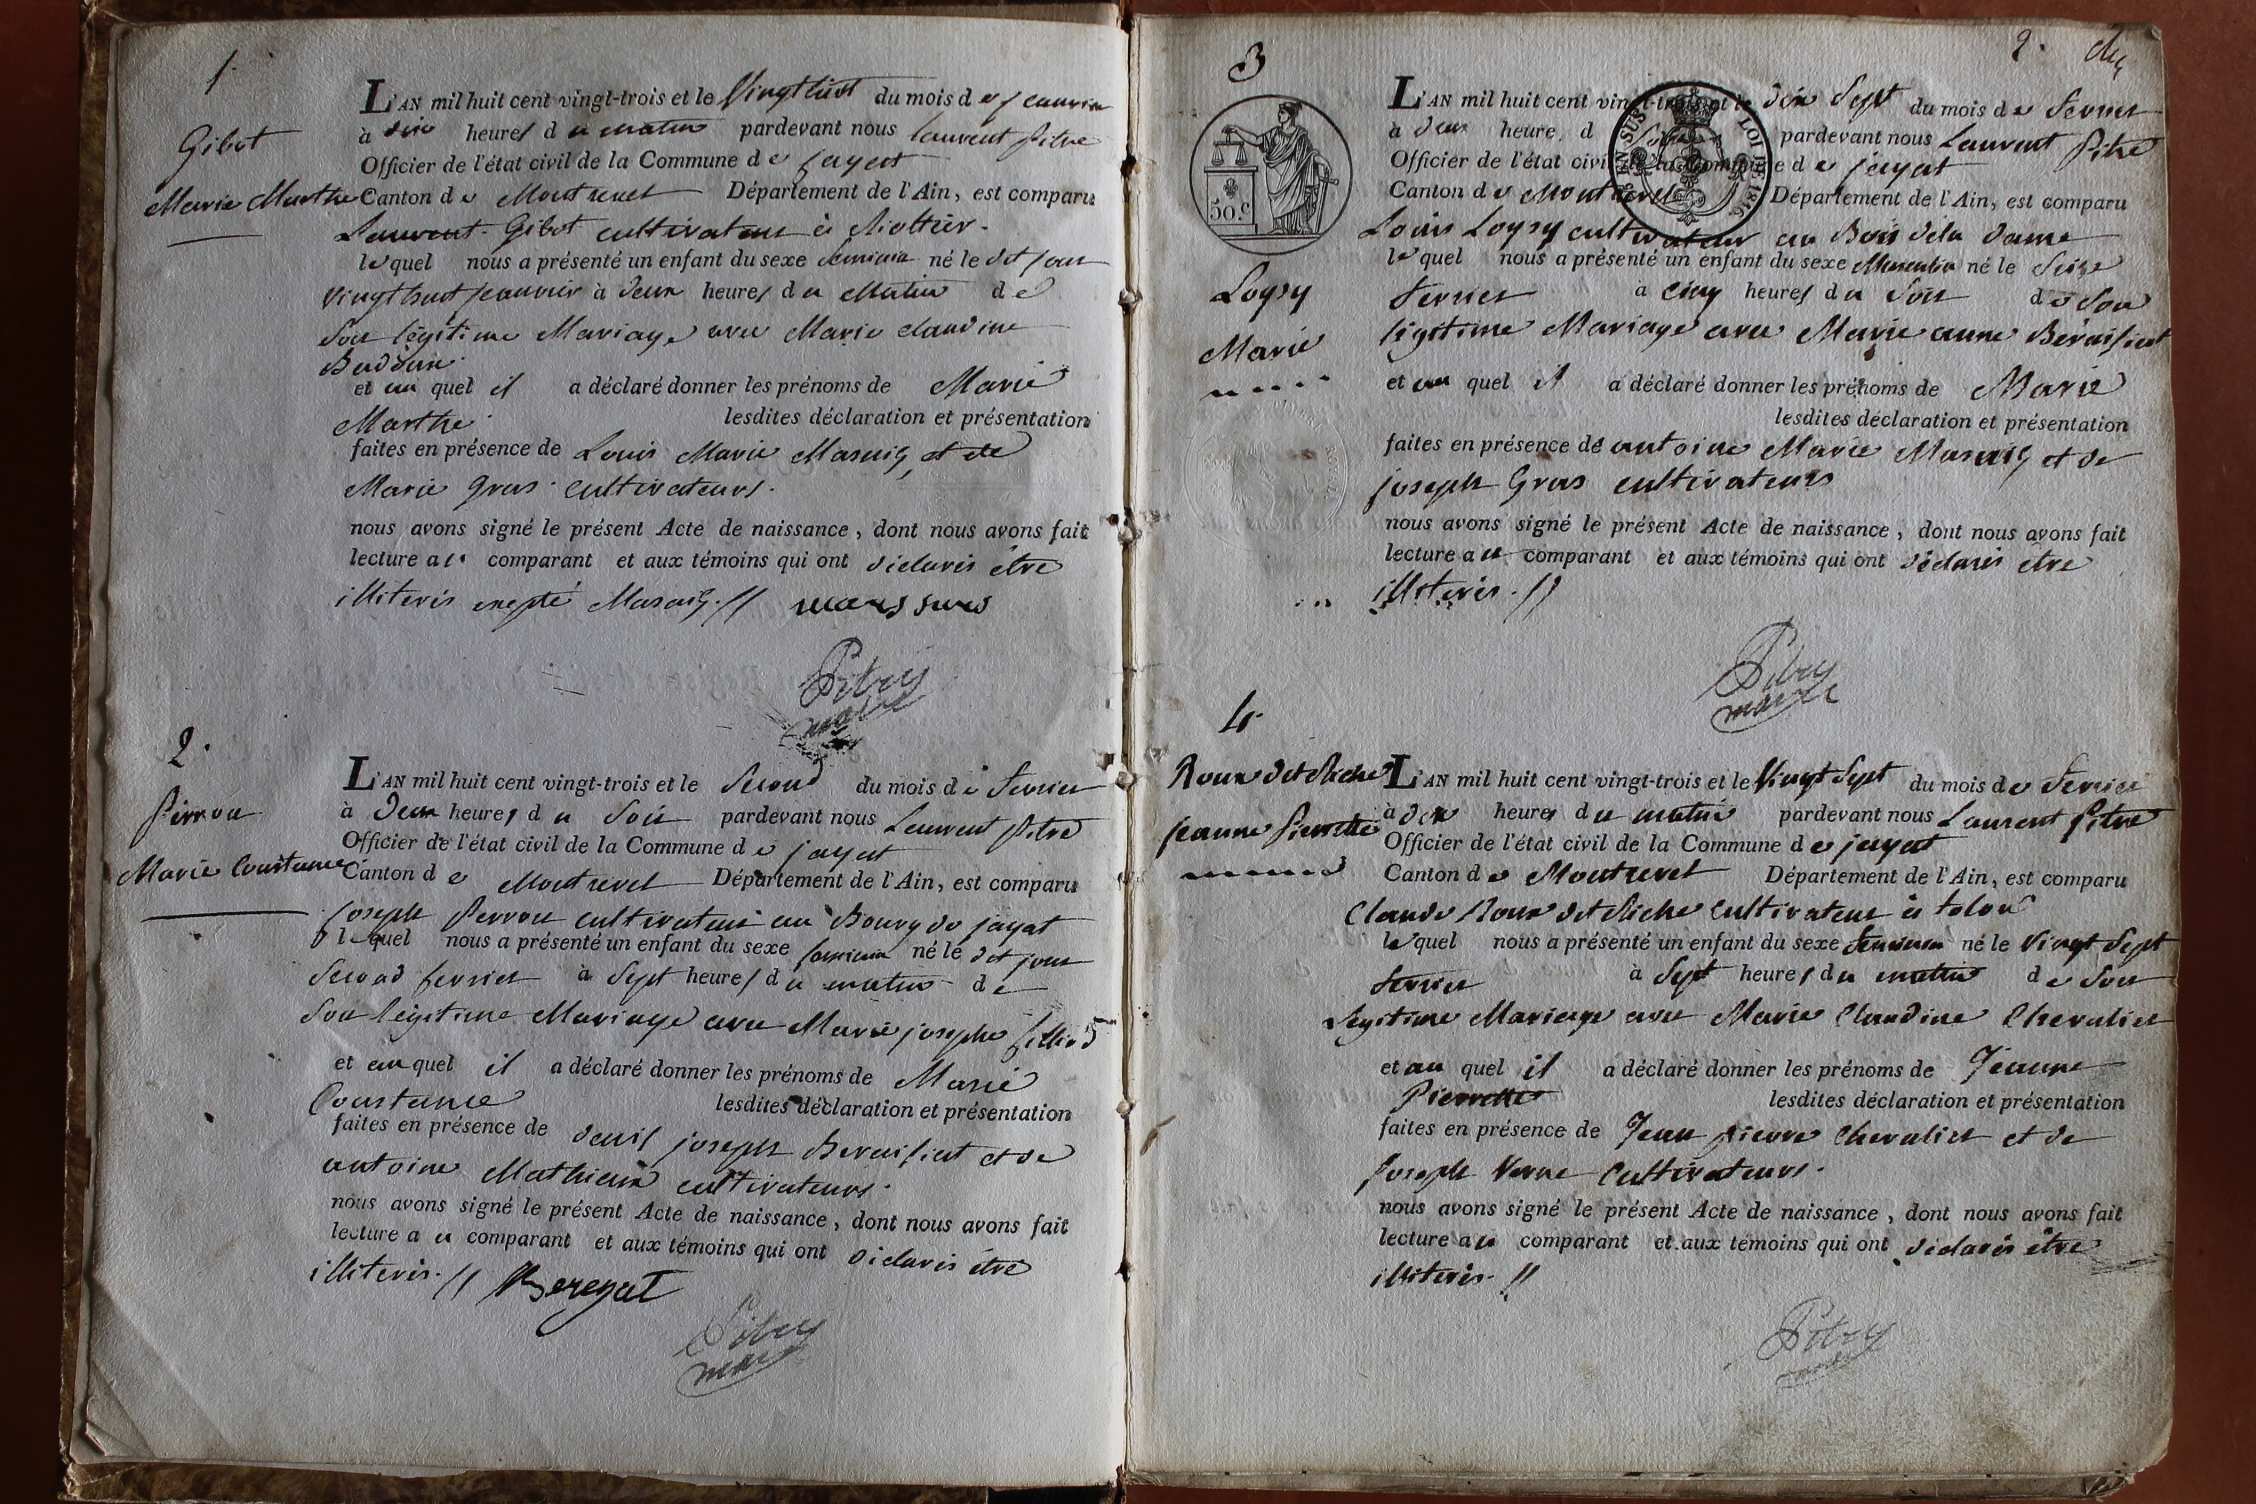 1.
Gibot
Marie Marthe
L'AN mil huit cent vingt-trois et le Vingt huit du mois de janvier
à dix heures du matin pardevant nous Laurent Pitre
Officier de l'état civil de la Commune de jayat
Canton de Montrevel Département de l'Ain, est comparu
Laurent Gibot cultivateur à
lequel nous a présenté un enfant du sexe feminin né le dit jour
vingt huit janvier à deux heures du matin de
Son légitime Mariage avec Marie claudine
et au quel il a déclaré donner les prénoms de Marie
Marthe lesdites déclaration et présentation
faites en présence de Louis Marie Masuis et de
Marie Gras cultivateurs.
nous avons signé le présent Acte de naissance, dont nous avons fait
lecture au comparant et aux témoins qui ont déclarés être
illiterés Masuis. //
Pitre
maire
2.
Perrou
Marie Constance
L'AN mil huit cent vingt-trois et le Second du mois de fevrier
à deux heures du Soir pardevant nous Laurent Pitre
Officier de l'état civil de la Commune de jayat
Canton de Montrevel Département de l'Ain, est comparu
joseph Perrou cultivateur au Bourg de jayat
lequel nous a présenté un enfant du sexe feminin né le dit jour
Second fevrier à Sept heures du matin de
Son légitime Mariage avec Marie josephe
et au quel il a déclaré donner les prénoms de Marie
Constance lesdites déclaration et présentation
faites en présence de denis joseph et de
antoine Mathieux cultivateurs.
nous avons signé le présent Acte de naissance, dont nous avons fait
lecture au comparant et aux témoins qui ont déclarés être
illiterés. //
Pitre
maire
3
2.
50 c
EN SUS LOI DE 1816
Loysy
Marie
L'AN mil huit cent vingt-trois et le dix Sept du mois de fevrier
à deux heure, d pardevant nous Laurent Pitre
Officier de l'état civil de la Commune de jayat
Canton de Montrevel Département de l'Ain, est comparu
Louis Loysy cultivateur au Bois dela dame
lequel nous a présenté un enfant du sexe Masculin né le Seize
fevrier à cinq heures du Soir de Son
légitime Mariage avec Marie anne
et au quel il a déclaré donner les prénoms de Marie
lesdites déclaration et présentation
faites en présence de antoine Marie Masuis et de
joseph Gras cultivateurs
nous avons signé le présent Acte de naissance, dont nous avons fait
lecture au comparant et aux témoins qui ont déclarés être
illiterés. //
Pitre
maire
4.
Roux dit Riche
jeanne Pierrette
L'AN mil huit cent vingt-trois et le Vingt Sept du mois de fevrier
à dix heures du matin pardevant nous Laurent Pitre
Officier de l'état civil de la Commune de jayat
Canton de Montrevel Département de l'Ain, est comparu
Claude Roux dit Riche cultivateur à
lequel nous a présenté un enfant du sexe feminin né le Vingt Sept
fevrier à Sept heures du matin de Son
légitime Mariage avec Marie Claudine Chevalier
et au quel il a déclaré donner les prénoms de Jeanne
Pierrette lesdites déclaration et présentation
faites en présence de Jean pierre Chevalier et de
joseph Verne Cultivateurs.
nous avons signé le présent Acte de naissance, dont nous avons fait
lecture au comparant et aux témoins qui ont déclarés être
illiterés. //
Pitre